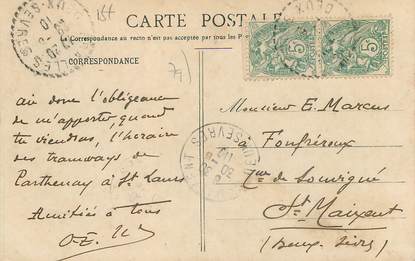 CARTE POSTALE
La Correspondance au recto n'est pas acceptée par tous les P
CORRESPONDANCE
5
5
aie donc l'obligeance
de m'apporter, quand
tu viendras, l'horaire
des tramways de
Parthenay à St Laurs
Amitiés à tous
Monsieur E. Marcus
à Fonfréroux
de Souvigné
St Maixent
(Deux-Sèvres)